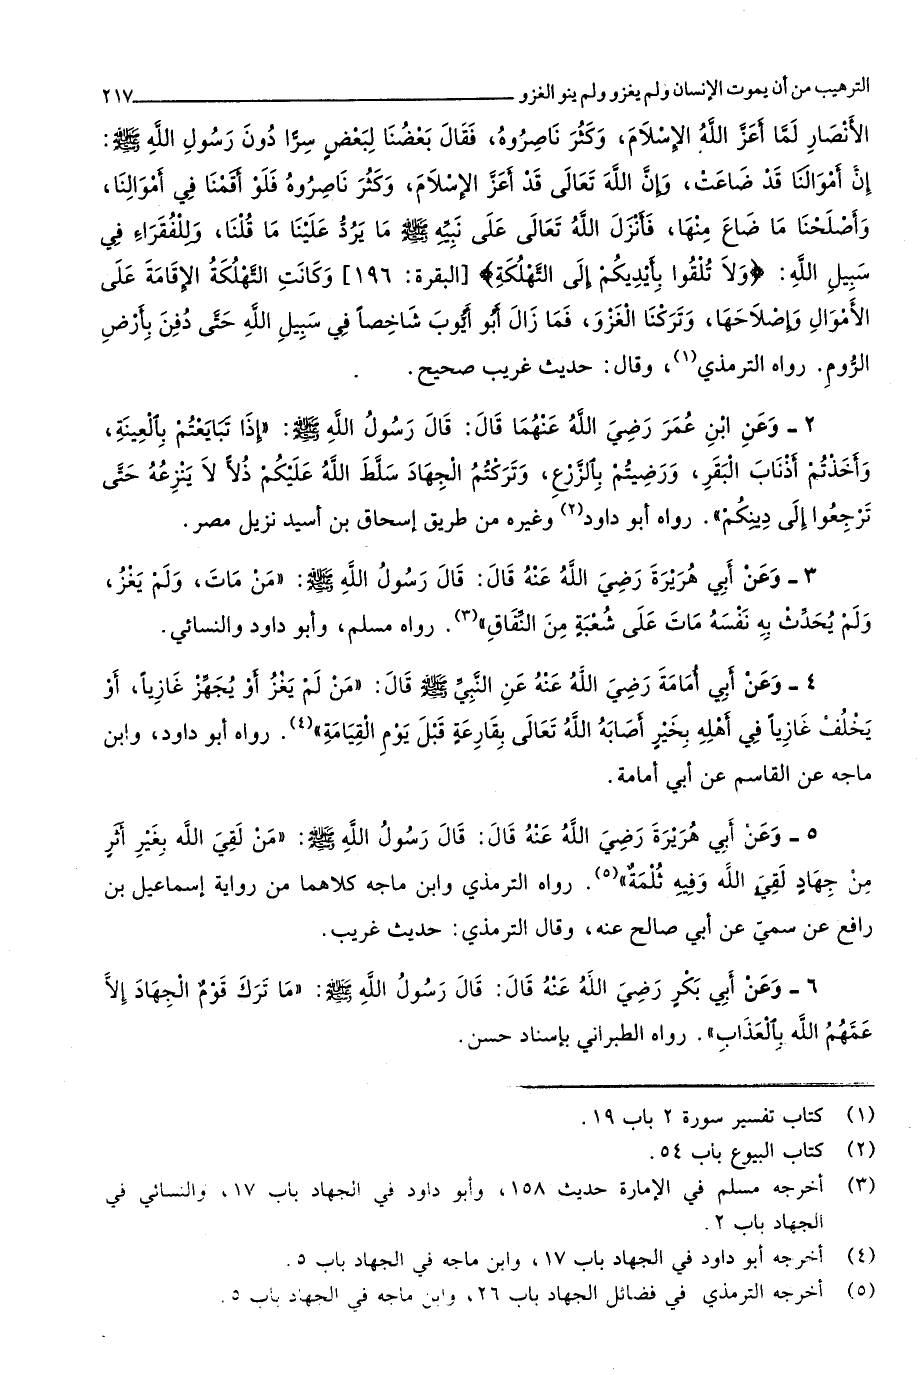 الترهيب من أن يموت الإنسان ولم يغزو ولم ينو الغزو ـــــ ٢١٧
الأَنْصَارِ لَمَّا أَعَزَّ اللَّهُ الإِسْلَامَ، وَكَثُرَ نَاصِرُوهُ، فَقَالَ بَعْضُنَا لِبَعْضٍ سِرّاً دُونَ رَسُولِ اللَّهِ ﷺ:
إِنَّ أَمْوَالَنَا قَدْ ضَاعَتْ، وَإِنَّ اللَّهَ تَعَالَى قَدْ أَعَزَّ الإِسْلَامَ، وَكَثُرَ نَاصِرُوهُ فَلَوْ أَقَمْنَا فِي أَمْوَالِنَا،
وَأَصْلَحْنَا مَا ضَاعَ مِنْهَا، فَأَنْزَلَ اللَّهُ تَعَالَى عَلَى نَبِيِّهِ ﷺ مَا يَرُدُّ عَلَيْنَا مَا قُلْنَا، وَلِلْفُقَرَاءِ فِي
سَبِيلِ اللَّهِ: ﴿وَلاَ تُلْقُوا بِأَيْدِيكُمْ إِلَى التَّهْلُكَةِ﴾ [البقرة: ١٩٦] وَكَانَتِ التَّهْلُكَةُ الإِقَامَةَ عَلَى
الأَمْوَالِ وَإِصْلَاحَهَا، وَتَرَكْنَا الْغَزْوَ، فَمَا زَالَ أَبُو أَيُّوبَ شَاخِصاً فِي سَبِيلِ اللَّهِ حَتَّى دُفِنَ بِأَرْضِ
الرُّومِ. رواه الترمذي(١)، وقال: حديث غريب صحيح.
٢ ـ وَعَنِ ابْنِ عُمَرَ رَضِيَ اللَّهُ عَنْهُمَا قَالَ: قَالَ رَسُولُ اللَّهِ ﷺ: «إِذَا تَبَايَعْتُمْ بِالْعِينَةِ،
وَأَخَذْتُمْ أَذْنَابَ الْبَقَرِ، وَرَضِيتُمْ بِالزَّرْعِ، وَتَرَكْتُمُ الْجِهَادَ سَلَّطَ اللَّهُ عَلَيْكُمْ ذُلاًّ لاَ يَنْزِعُهُ حَتَّى
تَرْجِعُوا إِلَى دِينِكُمْ». رواه أبو داود(٢) وغيره من طريق إسحاق بن أسيد نزيل مصر.
٣ ـ وَعَنْ أَبِي هُرَيْرَةَ رَضِيَ اللَّهُ عَنْهُ قَالَ: قَالَ رَسُولُ اللَّهِ ﷺ: «مَنْ مَاتَ، وَلَمْ يَغْزُ،
وَلَمْ يُحَدِّثْ بِهِ نَفْسَهُ مَاتَ عَلَى شُعْبَةٍ مِنَ النِّفَاقِ»(٣). رواه مسلم، وأبو داود والنسائي.
٤ ـ وَعَنْ أَبِي أُمَامَةَ رَضِيَ اللَّهُ عَنْهُ عَنِ النَّبِيِّ ﷺ قَالَ: «مَنْ لَمْ يَغْزُ أَوْ يُجَهِّزْ غَازِياً، أَوْ
يَخْلُفْ غَازِياً فِي أَهْلِهِ بِخَيْرٍ أَصَابَهُ اللَّهُ تَعَالَى بِقَارِعَةٍ قَبْلَ يَوْمِ الْقِيَامَةِ»(٤). رواه أبو داود، وابن
ماجه عن القاسم عن أبي أمامة.
٥ ـ وَعَنْ أَبِي هُرَيْرَةَ رَضِيَ اللَّهُ عَنْهُ قَالَ: قَالَ رَسُولُ اللَّهِ ﷺ: «مَنْ لَقِيَ اللَّه بِغَيْرِ أَثَرٍ
مِنْ جِهَادٍ لَقِيَ اللَّه وَفِيهِ ثُلْمَةٌ»(٥). رواه الترمذي وابن ماجه كلاهما من رواية إسماعيل بن
رافع عن سميّ عن أبي صالح عنه، وقال الترمذي: حديث غريب.
٦ ـ وَعَنْ أَبِي بَكْرٍ رَضِيَ اللَّهُ عَنْهُ قَالَ: قَالَ رَسُولُ اللَّهِ ﷺ: «مَا تَرَكَ قَوْمٌ الْجِهَادَ إِلاَّ
عَمَّهُمُ اللَّه بِالْعَذَابِ». رواه الطبراني بإسناد حسن.
(١) كتاب تفسير سورة ٢ باب ١٩.
(٢) كتاب البيوع باب ٥٤.
(٣) أخرجه مسلم في الإمارة حديث ١٥٨، وأبو داود في الجهاد باب ١٧، والنسائي في
الجهاد باب ٢.
(٤) أخرجه أبو داود في الجهاد باب ١٧، وابن ماجه في الجهاد باب ٥.
(٥) أخرجه الترمذي في فضائل الجهاد باب ٢٦، وابن ماجه في الجهاد باب ٥.